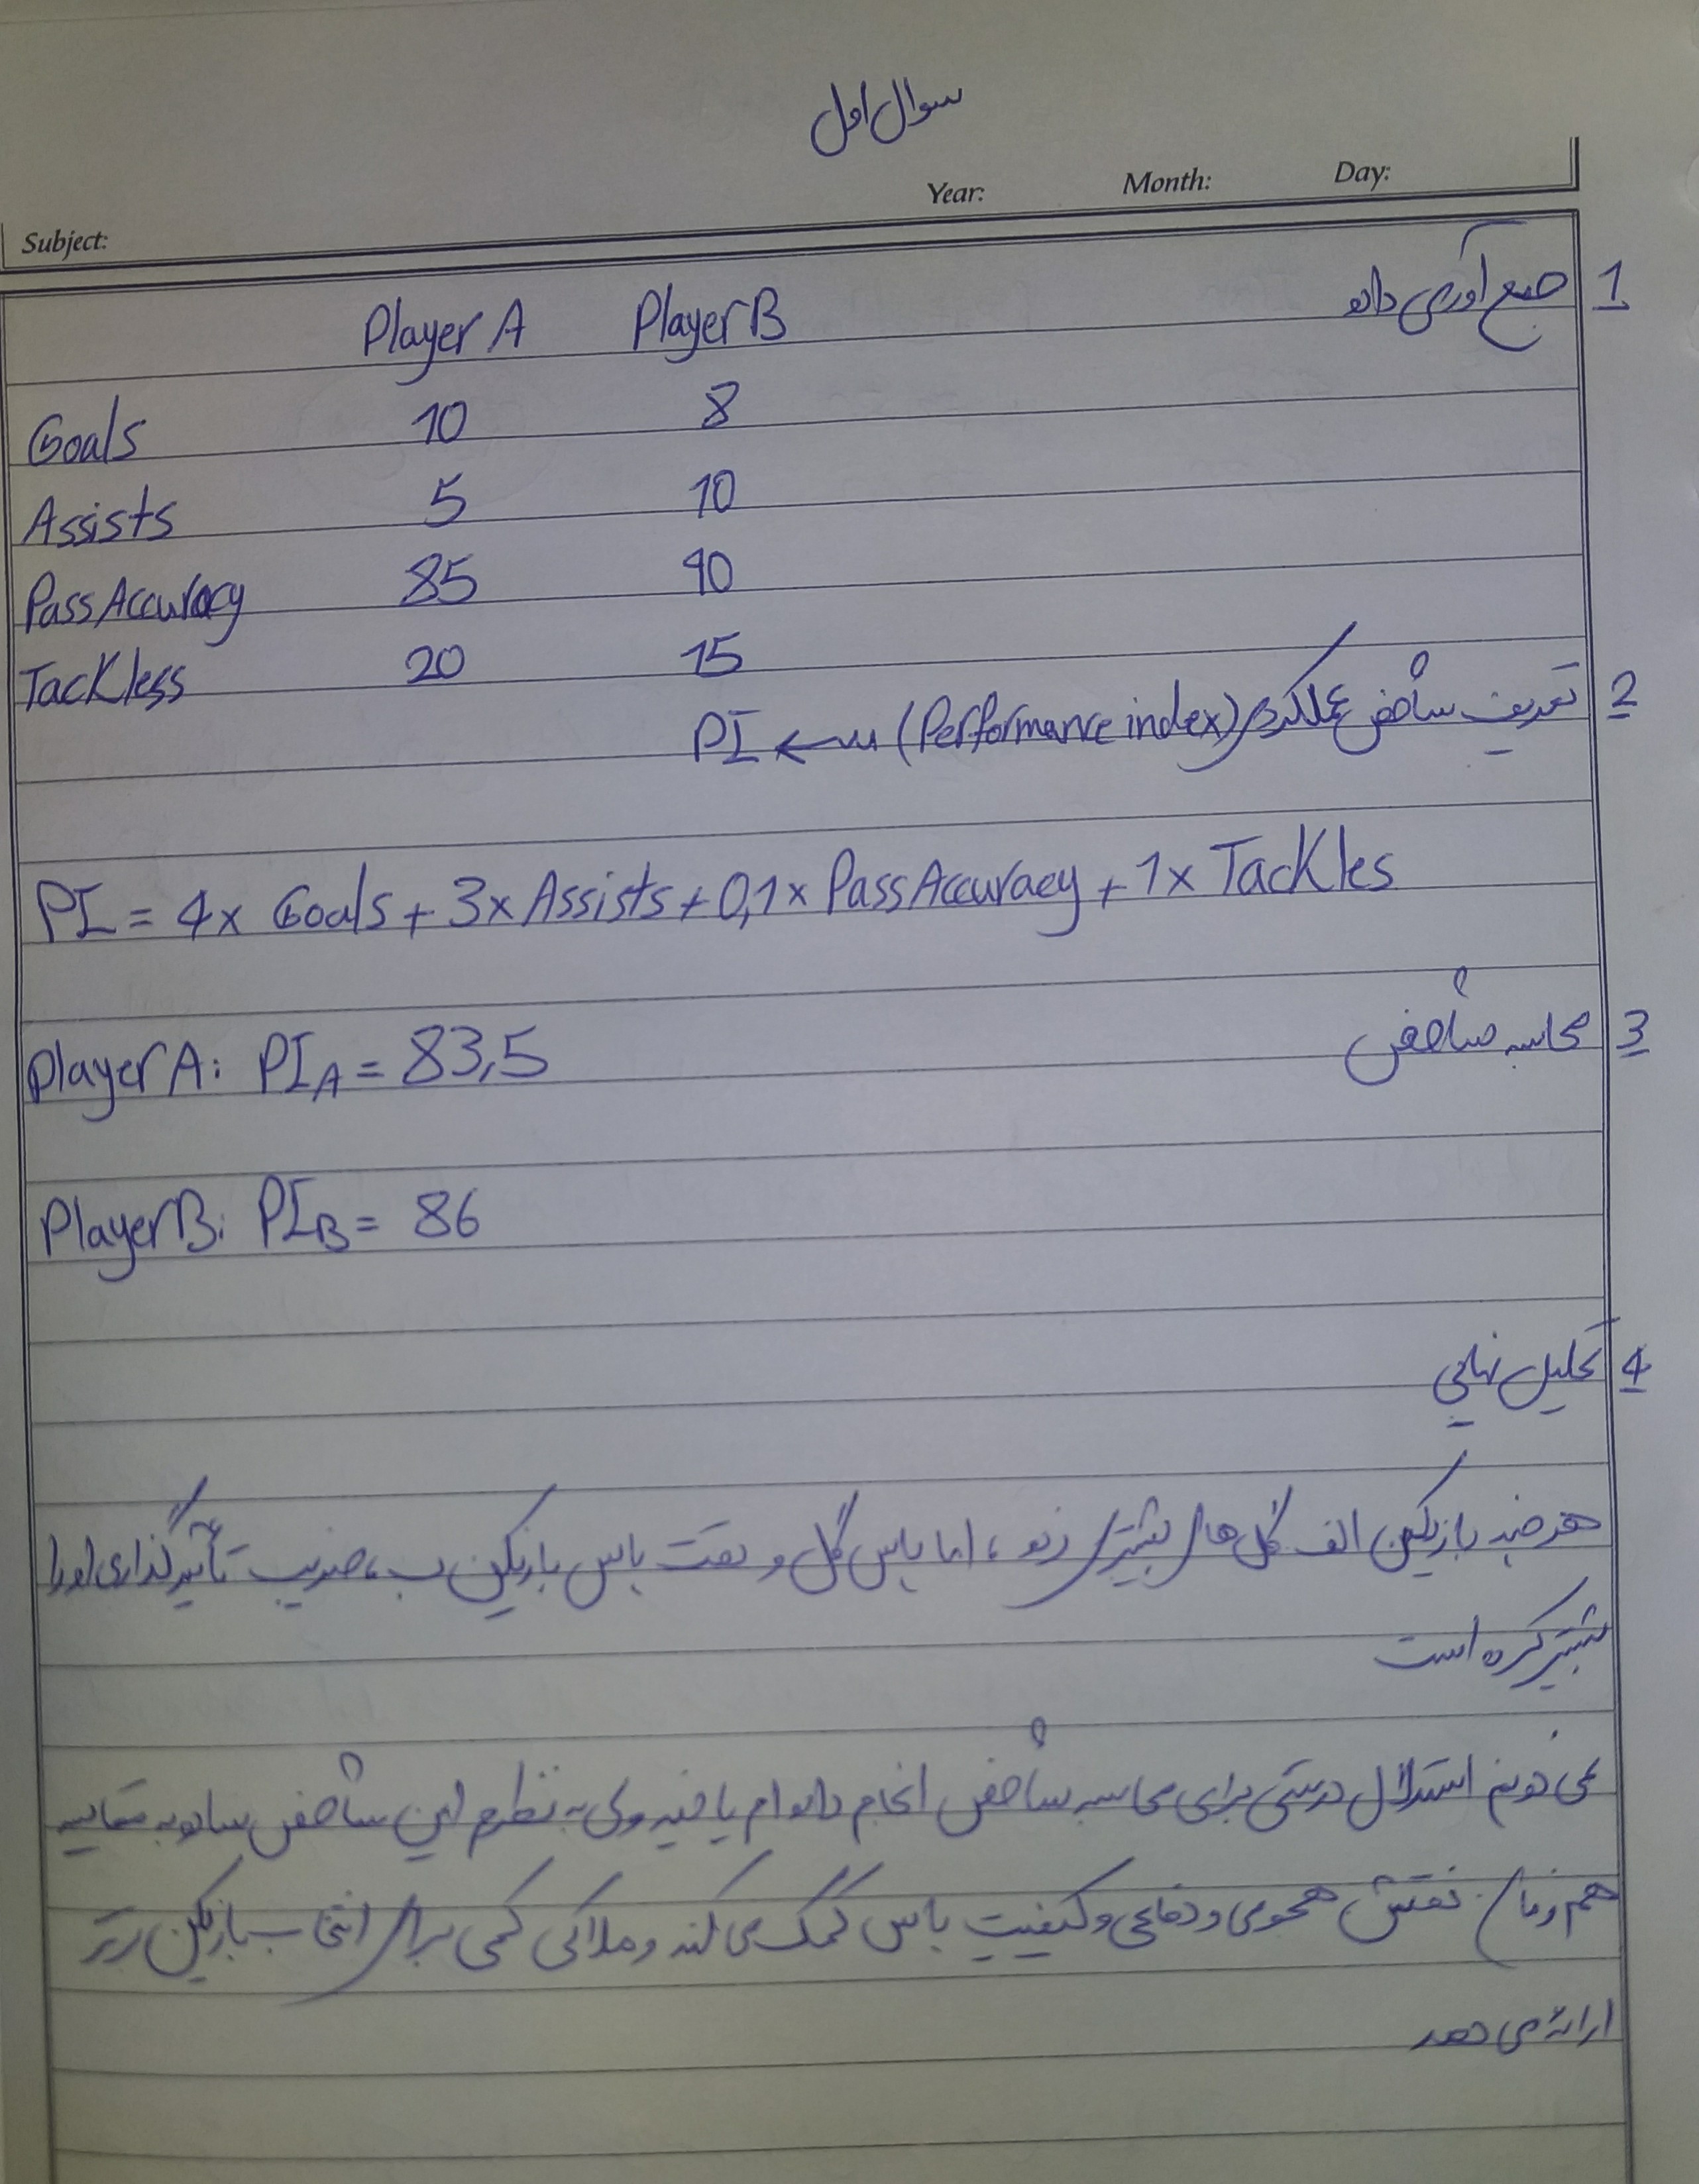 سوال اول
Year: Month: Day:
Subject:
1 جمع آوری داده
Player A Player B
Goals 10 8
Assists 5 10
Pass Accuracy 85 90
Tackless 20 15
2 تعریف شاخص عملکرد (Performance index) ← PI
PI = 4 × Goals + 3 × Assists + 0,1 × Pass Accuracy + 1 × Tackles
3 محاسبه شاخص
Player A: PIA = 83,5
Player B: PIB = 86
4 تحلیل نهایی
هرچند بازیکن الف گل های بیشتری زده، اما پاس گل و دقت پاس بازیکن ب، ضریب تأثیرگذاری او را
بیشتر کرده است
نمی دونم استدلال درستی برای محاسبه شاخص انجام داده ام یا خیر ولی به نظرم این شاخص ساده به مقایسه
هم زمان نقش هجومی و دفاعی و کیفیت پاس کمک می کند و ملاکی کمی برای انتخاب بازیکن برتر
ارائه می دهد